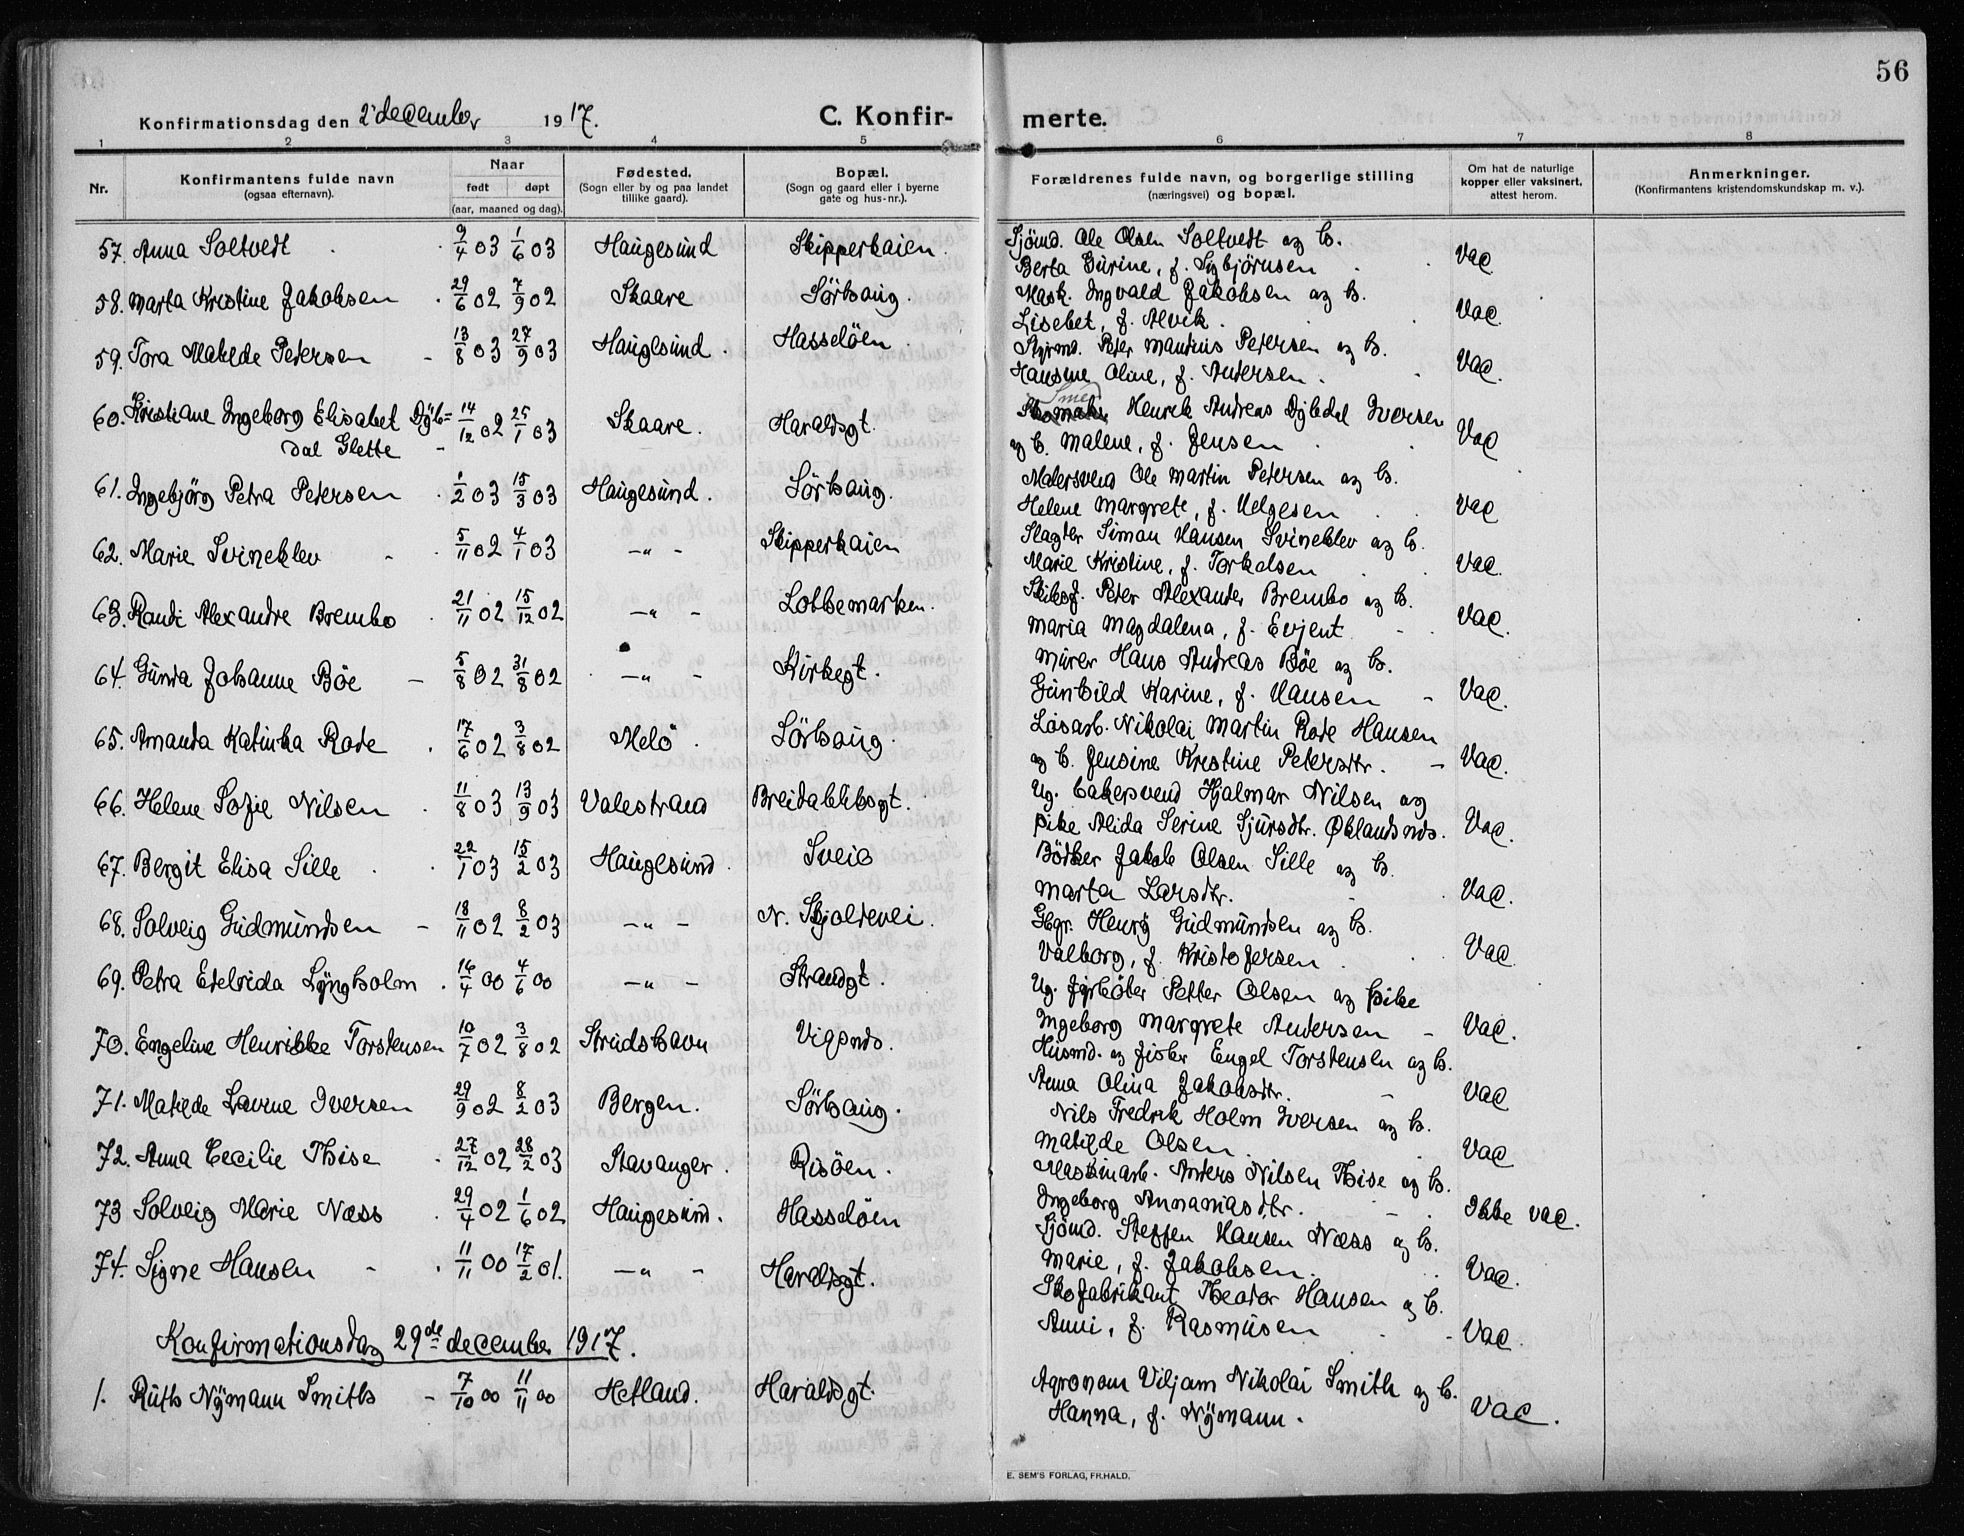 56
Konfirmationsdag den 2 december 1917.
C. Konfirmerte.
1 2 3 4 5 6 7 8
Nr.
Konfirmantens fulde navn
(ogsaa efternavn).
Naar
født døpt
(aar, maaned og dag).
Fødested.
(Sogn eller by og paa landet
tillike gaard).
Bopæl.
(Sogn og gaard eller i byerne
gate og hus-nr.).
Forældrenes fulde navn, og borgerlige stilling
(næringsvei) og bopæl.
Om hat de naturlige
kopper eller vaksinert,
attest herom.
Anmerkninger.
(Konfirmantens kristendomskundskap m. v.).
57. Anna Soltvedt 9/4 03 1/6 03 Haugesund Skipperkaien. Sjömd. Ole Olsen Soltvedt og h. Vac
Berta Gurine, f. Sigbjörnsen
58. Marta Kristine Jakobsen 29/6 02 7/9 02 Skaare Sörhaug. Mask. Ingvald Jakobsen og h. Vac.
Lisebet, f. Alvik.
59. Tora Matilde Petersen 13/8 03 27/9 03 Haugesund. Hasselöen. Styrmd. Peter Mauritius Petersen og h. Vac.
Hansine Oline, f. Andersen.
60. Kristiane Ingeborg Elisabet Dyb= 14/12 02 25/1 03 Skaare. Haraldsgt. Smed Henrik Andreas Dybdal Iversen Vac
dal Glette og h. Malene, f. Jensen
61. Ingebjörg Petra Petersen 1/2 03 15/3 03 Haugesund. Sörhaug. Malersvend Ole Martin Petersen og h. Vac
Helene Margrete, f. Helgesen
62. Marie Svineklev 5/11 02 4/1 03 —"— Skipperkaien Slagter Simon Hansen Svineklev og h. Vac.
Marie Kristine, f. Torkelsen
63. Randi Alexandre Brembo 21/11 02 15/12 02 —"— Lothemarken. Skibsf. Peter Alexander Brembo og h. Vac.
Maria Magdalena, f. Evjent
64. Gunda Johanne Böe 5/8 02 31/8 02 —"— Kirkegt. Murer Hans Andreas Böe og h. Vac.
Gunhild Karine, f. Hansen
65. Amanda Katinka Rode 17/6 02 3/8 02 Melö Sörhaug. Lösarb. Nikolai Martin Rode Hansen Vac.
og h. Jensine Kristine Petersdtr.
66. Helene Sofie Nilsen 11/8 03 13/9 03 Valestrand Breidablikgt. Ug. bakersvend Hjalmar Nilsen og Vac.
pike Alida Serine Sjursdtr. Øklandsnds.
67. Bergit Elisa Sille 22/1 03 15/2 03 Haugesund. Sveio Bödker Jakob Olsen Sille og h. Vac.
Marta Larsdtr.
68. Solveig Gudmundsen 18/11 02 8/2 03 —"— N. Skjoldevei. Gbgr. Henry Gudmundsen og h. Vac
Valborg, f. Kristofersen
69. Petra Edelrida Lyngholm 16/4 00 4/6 00 —"— Strandgt. Ug. fyrböter Petter Olsen og pike Vac.
Ingeborg Margrete Andersen
70. Engeline Henrikke Torstensen 10/7 02 3/8 02 Strudshavn Vigsnds. Husmd. og fisker Engel Torstensen og h. Vac
Anna Olina Jakobsdtr.
71. Matilde Lavine Iversen 29/9 02 8/2 03 Bergen. Sörhaug. Nils Fredrik Holm Iversen og h. Vac
Matilde Olsen.
72. Anna Cecilie Thise 27/12 02 28/2 03 Stavanger. Risöen. Maskinarb. Anders Nilsen Thise og h. Ikke vac.
Ingeborg Annaniasdtr.
73 Solveig Marie Næss 29/4 02 1/6 02 Haugesund. Hasselöen Sjömd. Steffen Hansen Næss og h. Vac.
Marie, f. Jakobsen.
74. Signe Hansen 11/11 00 17/2 01. —"— Haraldsgt. Skofabrikant Theodor Hansen og h. Vac.
Anni, f. Rasmusen
Konfirmationsdag 29de december 1917.
1. Ruth Nymann Smith 7/10 00 11/11 00 Hetland. Haraldsgt. Agronom Viljam Nikolai Smith og h. Vac.
Hanna, f. Nymann.
E. SEM'S FORLAG, FR.HALD.